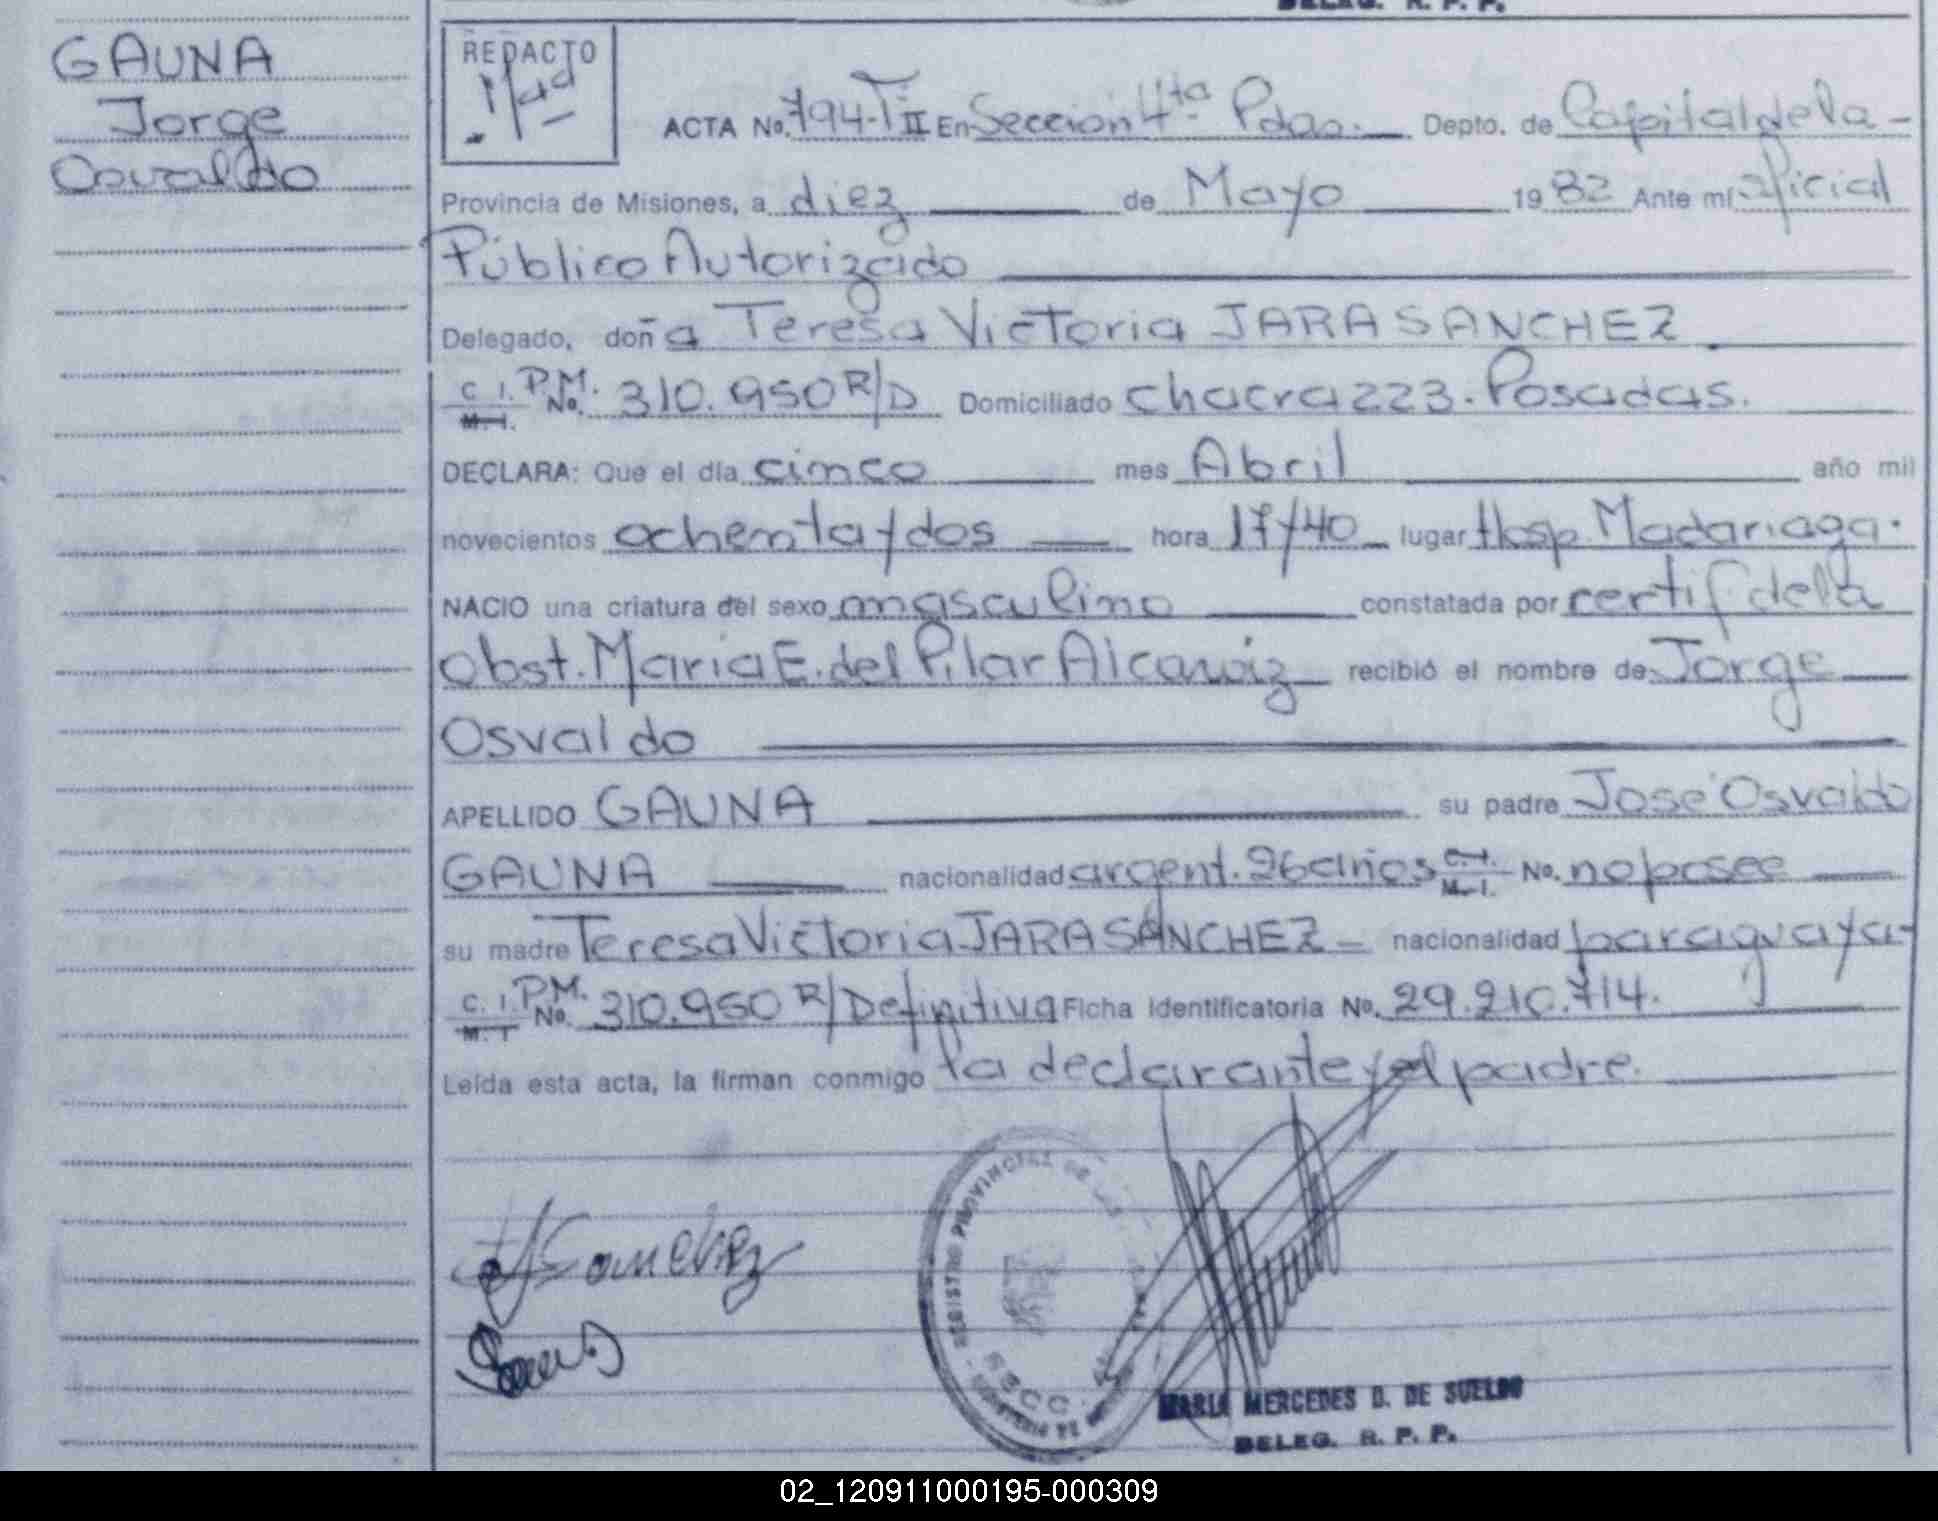 DELEG. R. P. P.
GAUNA
Jorge
Osvaldo
REDACTO
ACTA No. 794-T II En Sección 4ta Pdas. Depto. de Capital de la
Provincia de Misiones, a diez de Mayo 1982 Ante mí oficial
Público Autorizado
Delegado, doña Teresa Victoria JARA SANCHEZ
C. I. P.M. M.I. No. 310.950 R/D Domiciliado chacra 223. Posadas.
DECLARA: Que el día cinco mes Abril año mil
novecientos ochenta y dos hora 17/40 lugar Hosp. Madariaga.
NACIO una criatura del sexo masculino constatada por certif de la
Obst. Maria E. del Pilar recibió el nombre de Jorge
Osvaldo
APELLIDO GAUNA su padre José Osvaldo
GAUNA nacionalidad argent. 26 años C.I. M.I. No. no posee
su madre Teresa Victoria JARA SANCHEZ nacionalidad paraguaya
C. I. P.M. M.I. No. 310.950 R/Definitiva Ficha Identificatoria No. 29.210.714.
Leída esta acta, la firman conmigo la declarante y el padre.
Sanchez
REGISTRO PROVINCIAL DE LAS
MARIA MERCEDES D. DE SUELDO
DELEG. R. P. P.
02_120911000195-000309